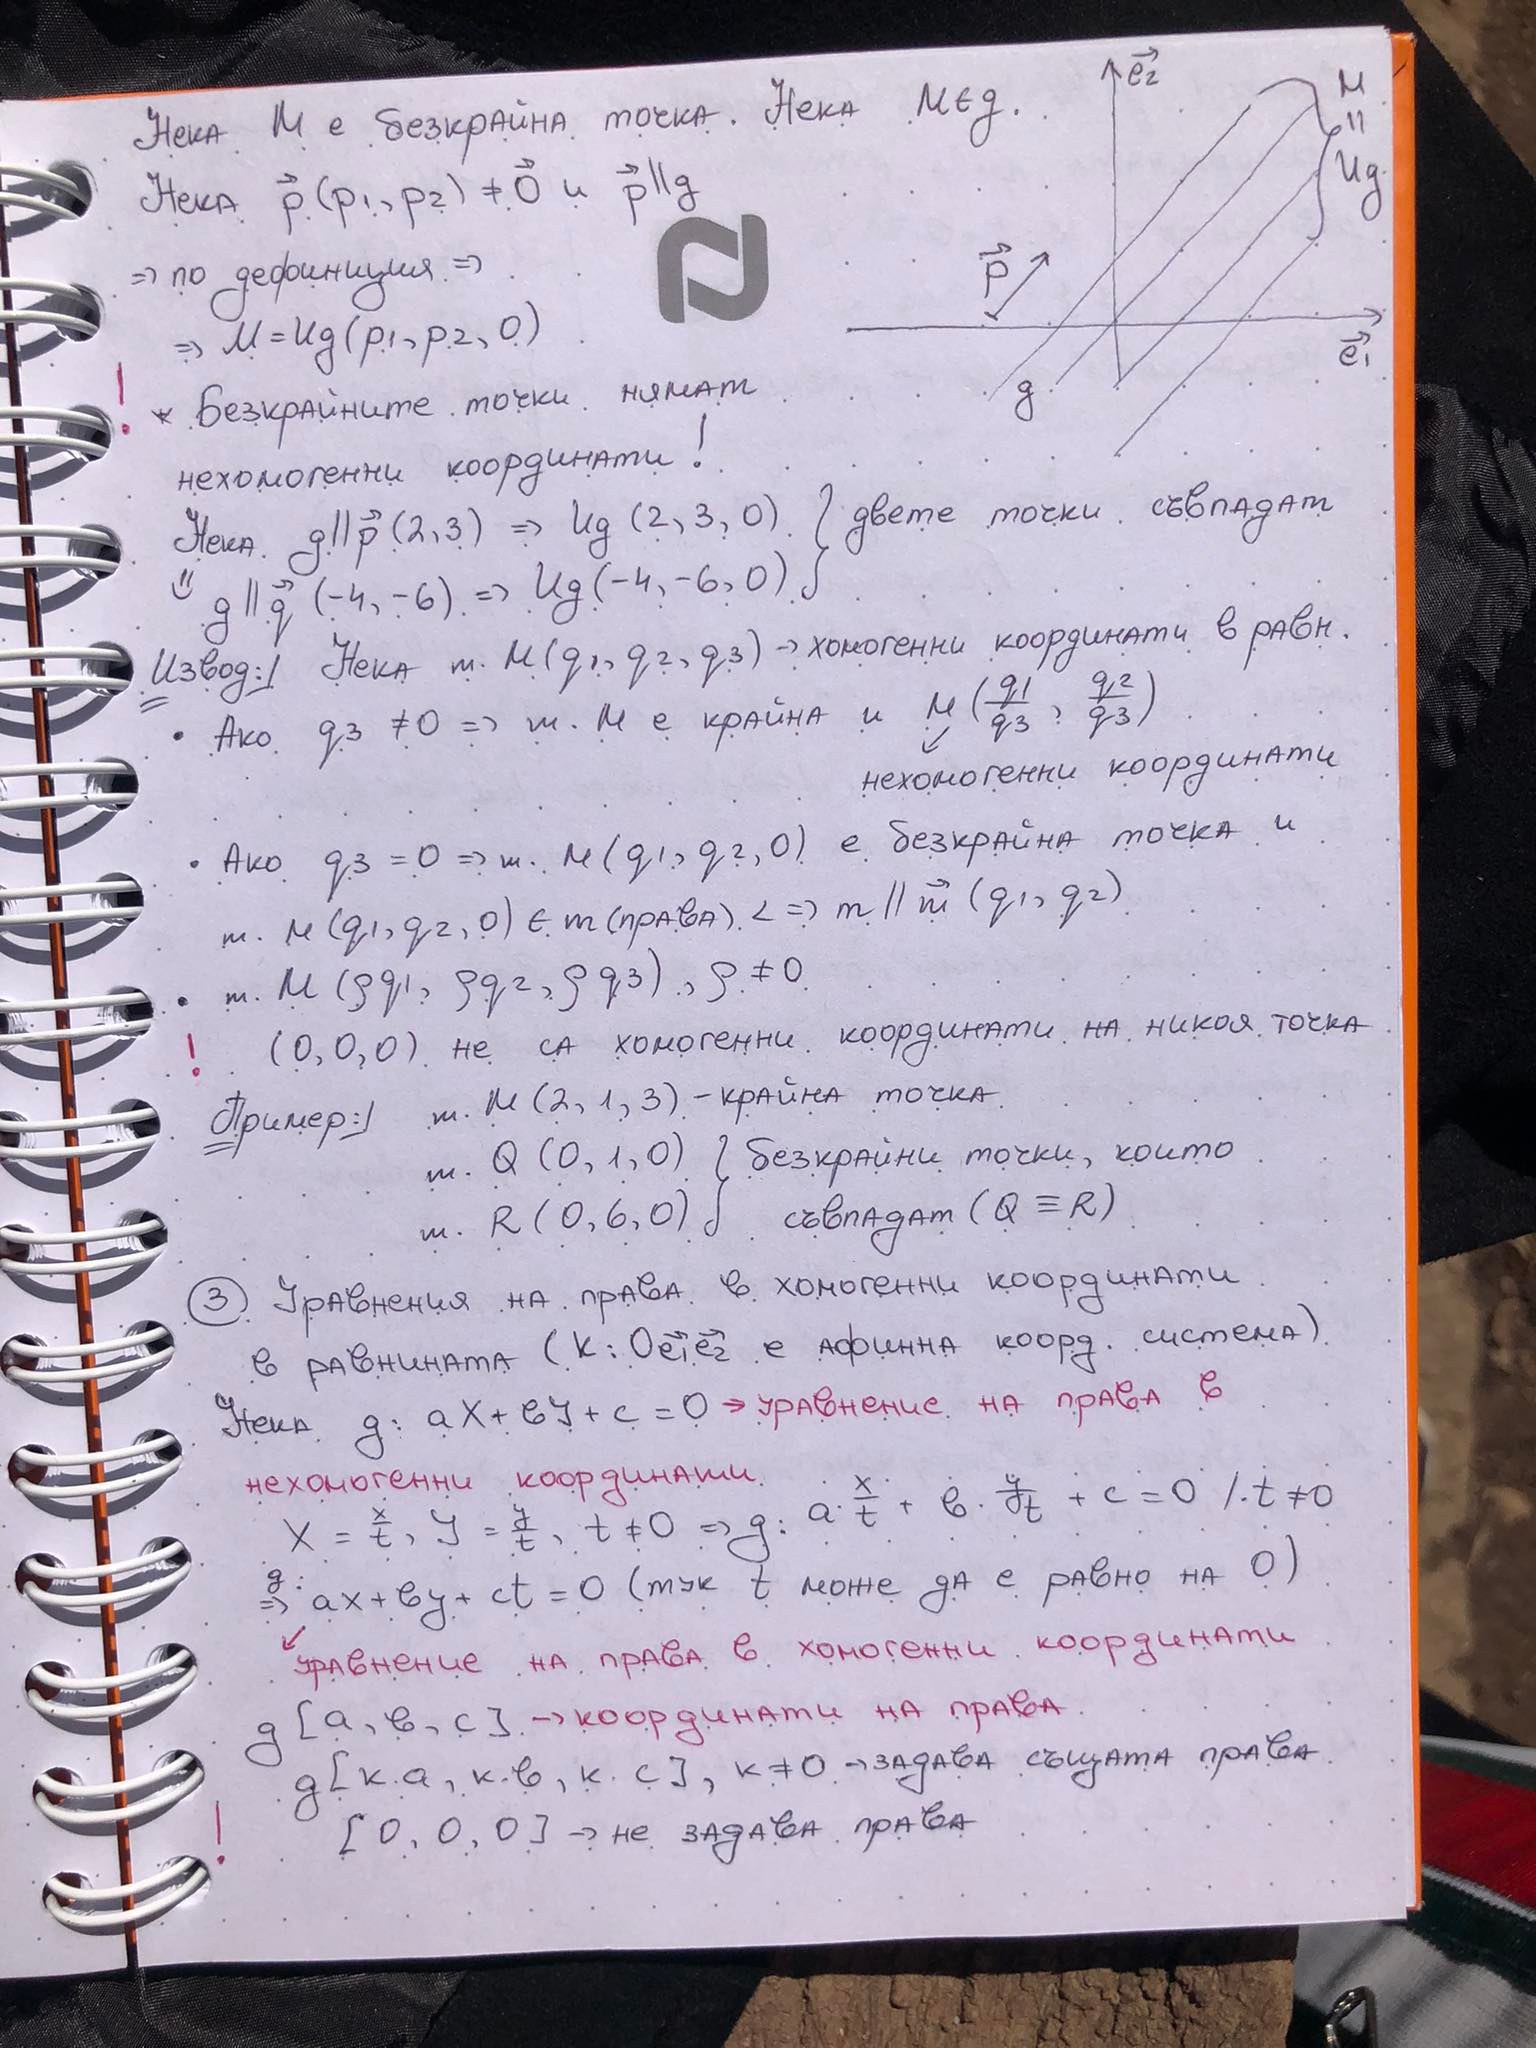 Нека M е безкрайна точка. Нека M ∈ g.
Нека p⃗ (p1, p2) ≠ 0⃗ и p⃗ || g
=> по дефиниция =>
=> M = Ug (p1, p2, 0)
e⃗2
M
=
Ug
p⃗
g
e⃗1
! * Безкрайните точки нямат
нехомогенни координати!
Нека g || p⃗ (2, 3) => Ug (2, 3, 0) } двете точки съвпадат
g || q⃗ (-4, -6) => Ug (-4, -6, 0)
Извод:/ Нека т. M (q1, q2, q3) -> хомогенни координати в равн.
• Ако q3 ≠ 0 => т. M е крайна и M (q1/q3, q2/q3)
нехомогенни координати
• Ако q3 = 0 => т. M (q1, q2, 0) е безкрайна точка и
т. M (q1, q2, 0) ∈ m (права) <=> m || m⃗ (q1, q2)
• т. M (ρq1, ρq2, ρq3), ρ ≠ 0
! (0, 0, 0) не са хомогенни координати на никоя точка
Пример:/ т. M (2, 1, 3) - крайна точка
т. Q (0, 1, 0) } безкрайни точки, които
т. R (0, 6, 0) съвпадат (Q ≡ R)
③ Уравнения на права в хомогенни координати
в равнината (K: Oe⃗1e⃗2 е афинна коорд. система)
Нека g: aX + вY + c = 0 -> уравнение на права в
нехомогенни координати
X = x/t, Y = y/t, t ≠ 0 => g: a. x/t + в. y/t + c = 0 /.t ≠ 0
g:
=> ax + вy + ct = 0 (тук t може да е равно на 0)
уравнение на права в хомогенни координати
g [a, в, c] -> координати на права
g [к.a, к.в, к.c], к ≠ 0 -> задава същата права
! [0, 0, 0] -> не задава права